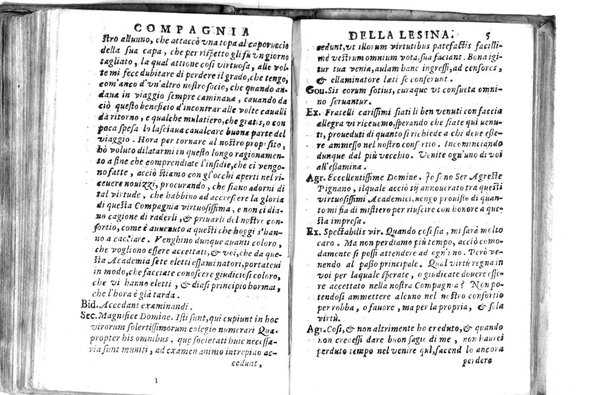 COMPAGNIA
stro alunno, che attaccò vna topa al caporuccio
della sua capa, che per rispetto gli fu vn giorno
tagliato, la qual attione così virtuosa, alle vol-
te mi fece dubitare di perdere il grado, che tengo,
com'anco d'vn'altro nostro socio, che quando an-
daua in viaggio sempre caminaua, cauando da
ciò questo beneficio d'incontrar alle volte caualli
da ritorno, e qualche mulatiero, che gratis, o con
poca spesa lo lasciaua caualcare buona parte del
viaggio. Hora per tornare al nostro proposito,
hò voluto dilatarmi in questo longo ragionamen-
to a fine che comprendiate l'insidie, che ci vengo-
no fatte, acciò stiamo con gl'occhi aperti nel ri-
ceuere nouizzi, procurando, che siano adorni di
tal virtude, che habbino ad accrescer la gloria
di questa Compagnia virtuosissima, e non ci dia-
no cagione di raderli, & priuarli del nostro con-
sortio, come è auuenuto a questi che hoggi s'han-
no a cacciare. Venghino dunque auanti coloro,
che vogliono essere accettati, & voi, che da que-
sta Academia sete eletti essaminatori, portateui
in modo, che facciate conoscere giuditiosi coloro,
che vi hanno eletti, & diasi principio hormai,
che l'hora è già tarda.
Bid. Accedant examinandi.
Sec. Magnifice Domine. Isti sunt, qui cupiunt in hoc
virorum solertissimorum colegio numerari Qua
propter his omnibus, quæ societati huic necessa-
ria sunt muniti, ad examen animo intrepiao ac-
cedunt,
DELLA LESINA. 5
cedunt, vt illorum virtutibus patefactis facilli-
mè vestrum omnium vota, sua faciant. Bona igi
tur tua venia, aulam hanc ingressi, ad censores,
& ellaminatores lati se conferunt.
Gou. Sis eorum sotius, curaque vt consueta omni-
no seruantur.
Ex. Fratelli carissimi siati li ben venuti con faccia
allegra vi riceuemo, sperando che siate qui uenu-
ti, proueduti di quanto si richiede a chi deue esse-
re ammesso nel nostro consortio. Incominciamo
dunque dal più vecchio. Venite ogni uno di voi
all'essamina.
Agr. Eccellentissime Domine. Io so no Ser Agreste
Pignano, il quale acciò sij annouerato tra questi
virtuosissimi Academici, uengo prouisto di quan-
to mi fa di mistiero per riuscire con honore a que-
sta impresa.
Ex. Spectabilis vir. Quando così sia, mi sarà molto
caro. Ma non perdiamo più tempo, acciò como-
damente si possi attendere ad ogni cosa. Però ve-
nendo al passo principale. Qual virtù regna in
voi per laquale sperate, o giudicate douere esse-
re accettato nella nostra Compagnia? Non po-
tendosi ammettere alcuno nel nostro consortio
per robba, o fauore, ma per la propria, & sola
virtù.
Agr. Così, & non altrimente ho creduto, & quando
non credessi dare buon sagio di me, non haurei
perduto tempo nel venire quì, facend lo ancora
perdere